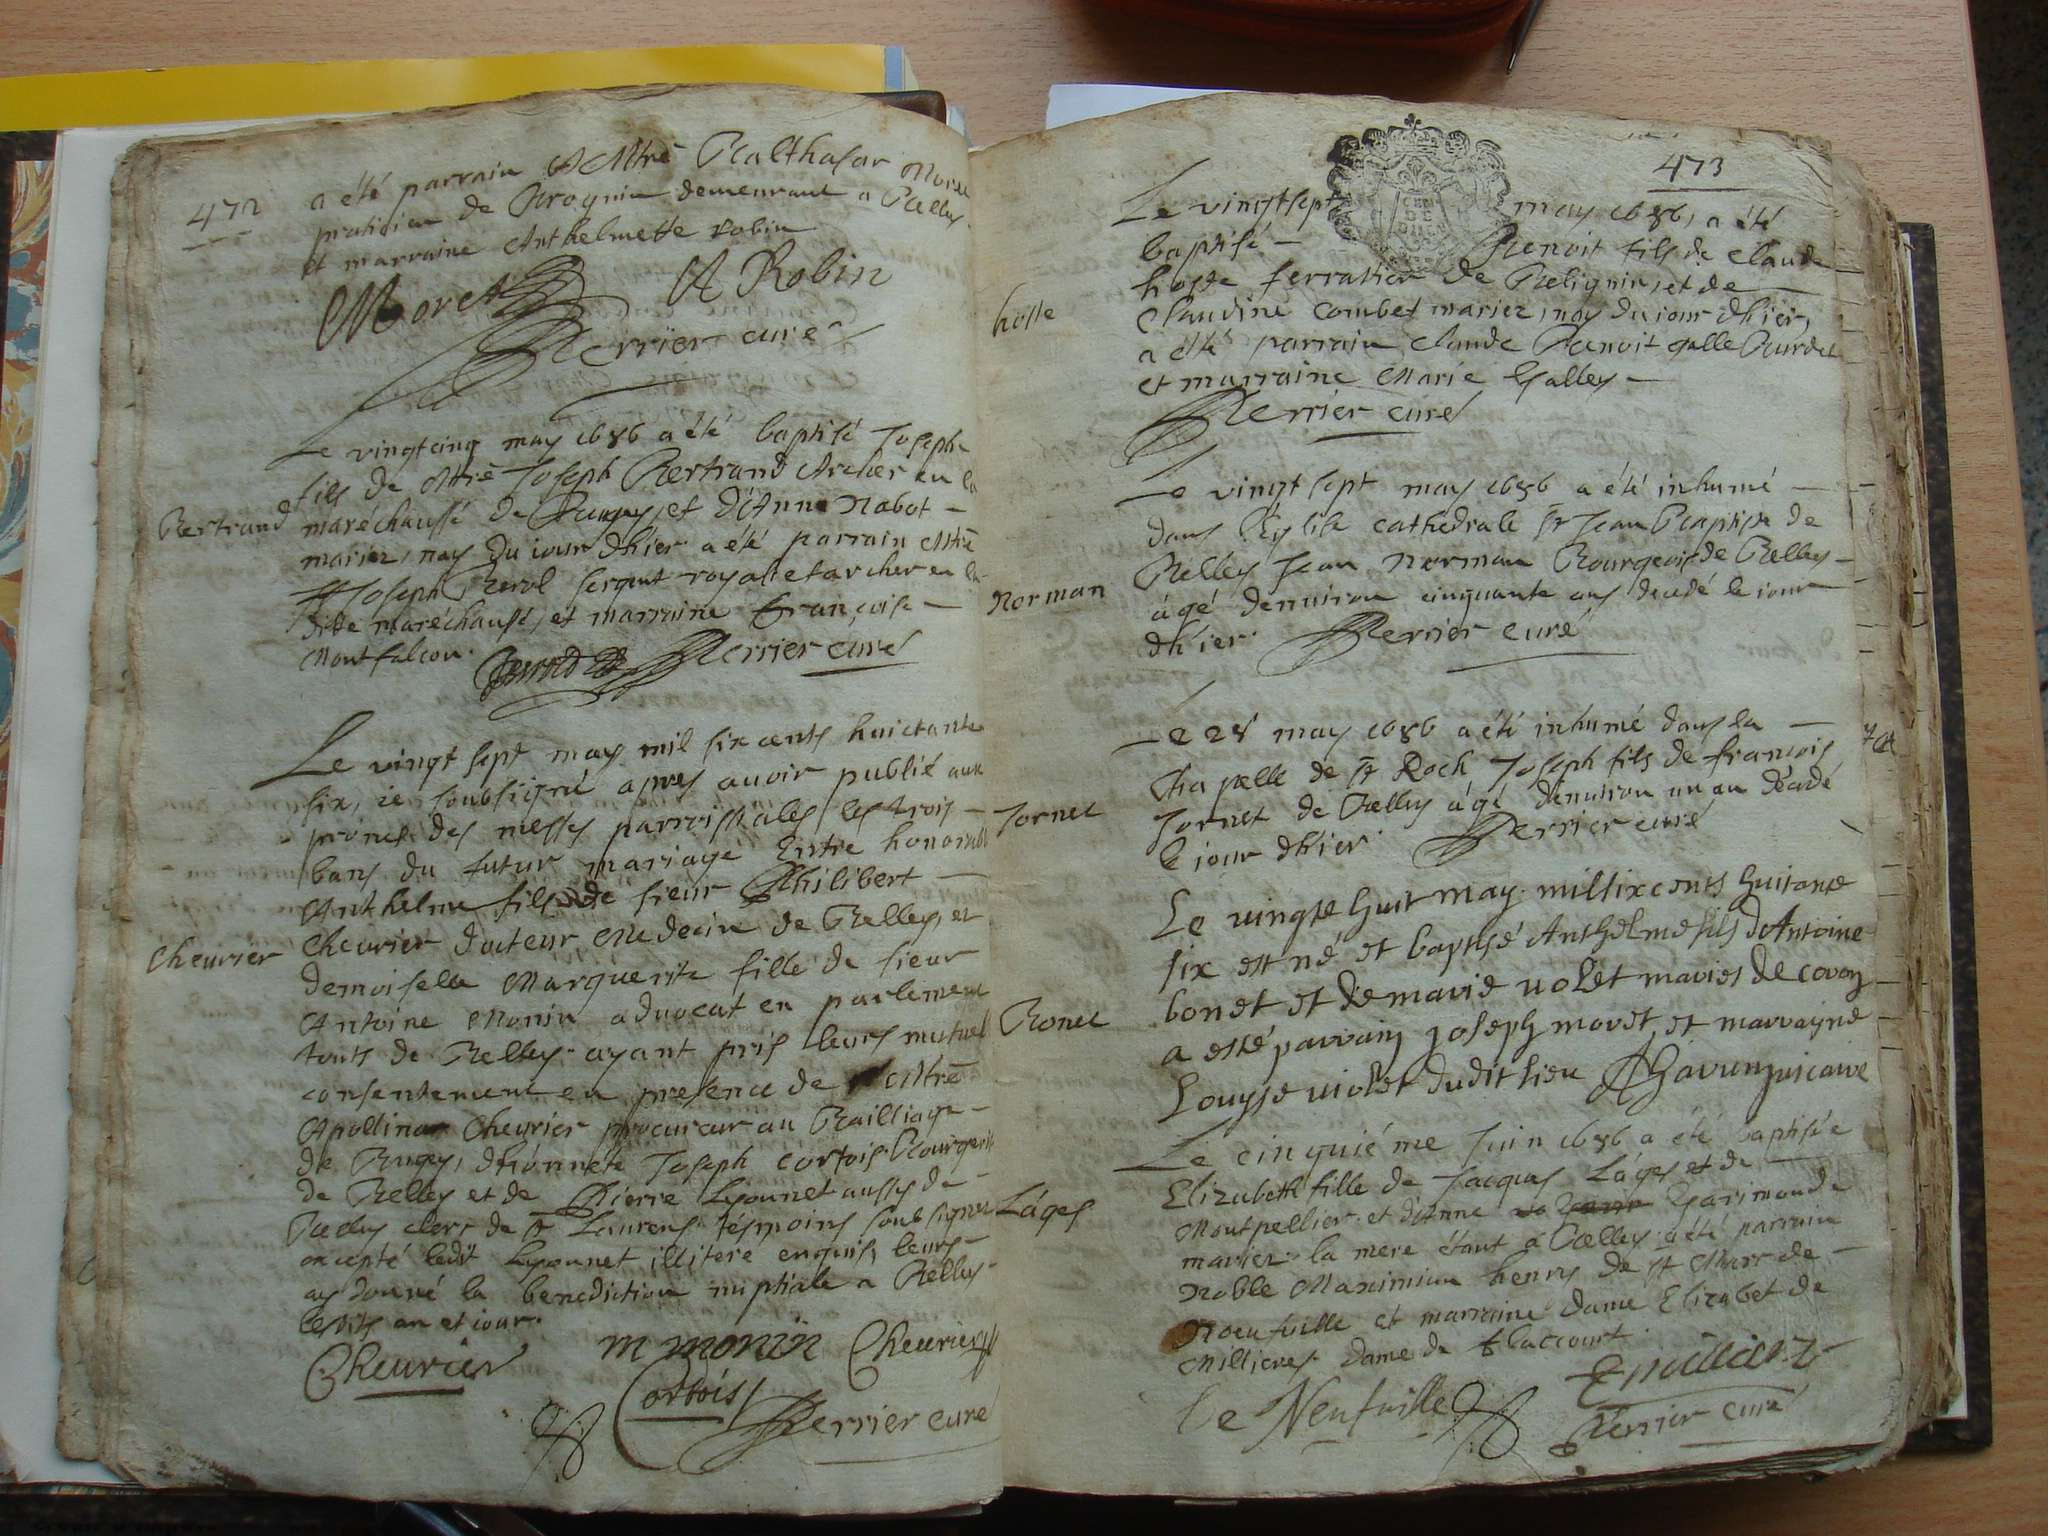 472
a été parrain Mtre Balthasar Moret
praticien de Brognin demeurant a Belley
et marraine Anthelmette Robin
Moret A Robin
Perrier curé
Le vingtcinq may 1686 a été baptisé Joseph
fils de Mtre Joseph Bertrand Archer en la
Bertrand
maréchaussé de Bugey, et d'Anne Nabot
mariez, nay du iour dhier a été parrain Mtre
Joseph sergent royal et archer en la
ditte maréchaussé, et marraine Françoise
Montfalcon. Perrier curé
Le vingt sept may mil six cents huictante
six, ie soubsigné apres auoir publié aux
prones des messes parroissiales les trois
bans du futur mariage Entre honorable
Anthelme fils de sieur Philibert
Cheurier
Cheurier docteur Medecin de Belley, et
demoiselle Marguerite fille de sieur
Antoine Monin aduocat en parlement
touts de Belley ayant pris leurs mutuel
consentement en presence de Mtre
Apollinar Cheurier procureur au Bailliage
de Bugey, dhonnete Joseph Cortois Bourgeois
de Belley et de Pierre Lyonnet aussy de
Belley clerc de St Laurens tésmoins soubsignez
excepté ledit Lyonnet illiteré enquis, leurs
ay donné la benediction nuptiale a Belley
lesdits an et iour.
Cheurier m monin Cheurier
Cortois Perrier curé
473
Le vingtsept may 1686, a été
baptisé Benoit fils de Claude
hoste
hoste ferratier de Belignin, et de
Claudine Combet mariez, nay du iour dhier,
a été parrain Claude Benoit Bourdet
et marraine Marie Galley
Perrier curé
Le vingt sept may 1686 a été inhumé
dans l'Eglise cathedrale St Jean Baptiste de
Belley Jean Norman Bourgeois de Belley
Norman
âgé denuiron cinquante ans decedé le iour
dhier. Perrier curé
Le 28 may 1686 a été inhumé dans la
Chapelle de St Roch Joseph fils de françois
Jornet
Jornet de Belley âgé denuiron un an décédé
le iour dhier Perrier curé
Le vingte huit may mil six cents huitante
six est né et baptisé Anthelme fils d'Antoine
Bonet
bonet et de marie violet maries de coron
a esté parrain joseph moret et marrayne
Louyse violet dudit lieu
Le cinquiéme Juin 1686 a été baptisée
Elizabeth fille de Jacques Lâges et de
Lâges
Montpellier et d'Anne Garimonde
mariez la mere étant a Belley a été parrain
Noble Maximian henry de St Marc de
Noeufuille et marraine dame Elizabet de
Millieres dame de
De Neufuille
Perrier curé